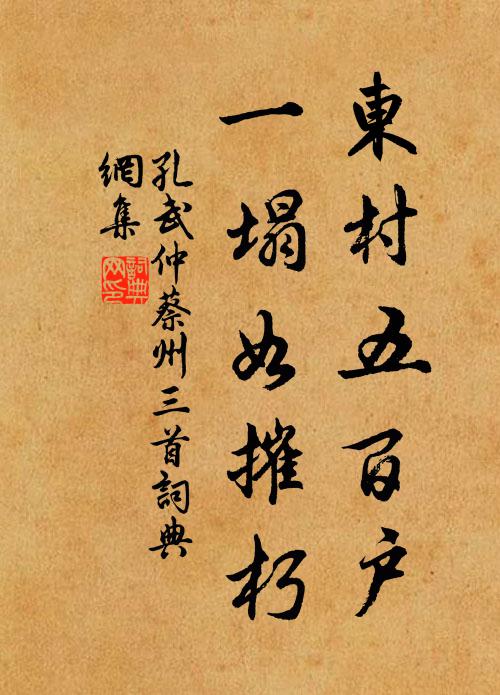 東村五百户
一塌如摧朽
孔武仲蔡州三首詞典
網集
詞典
网印